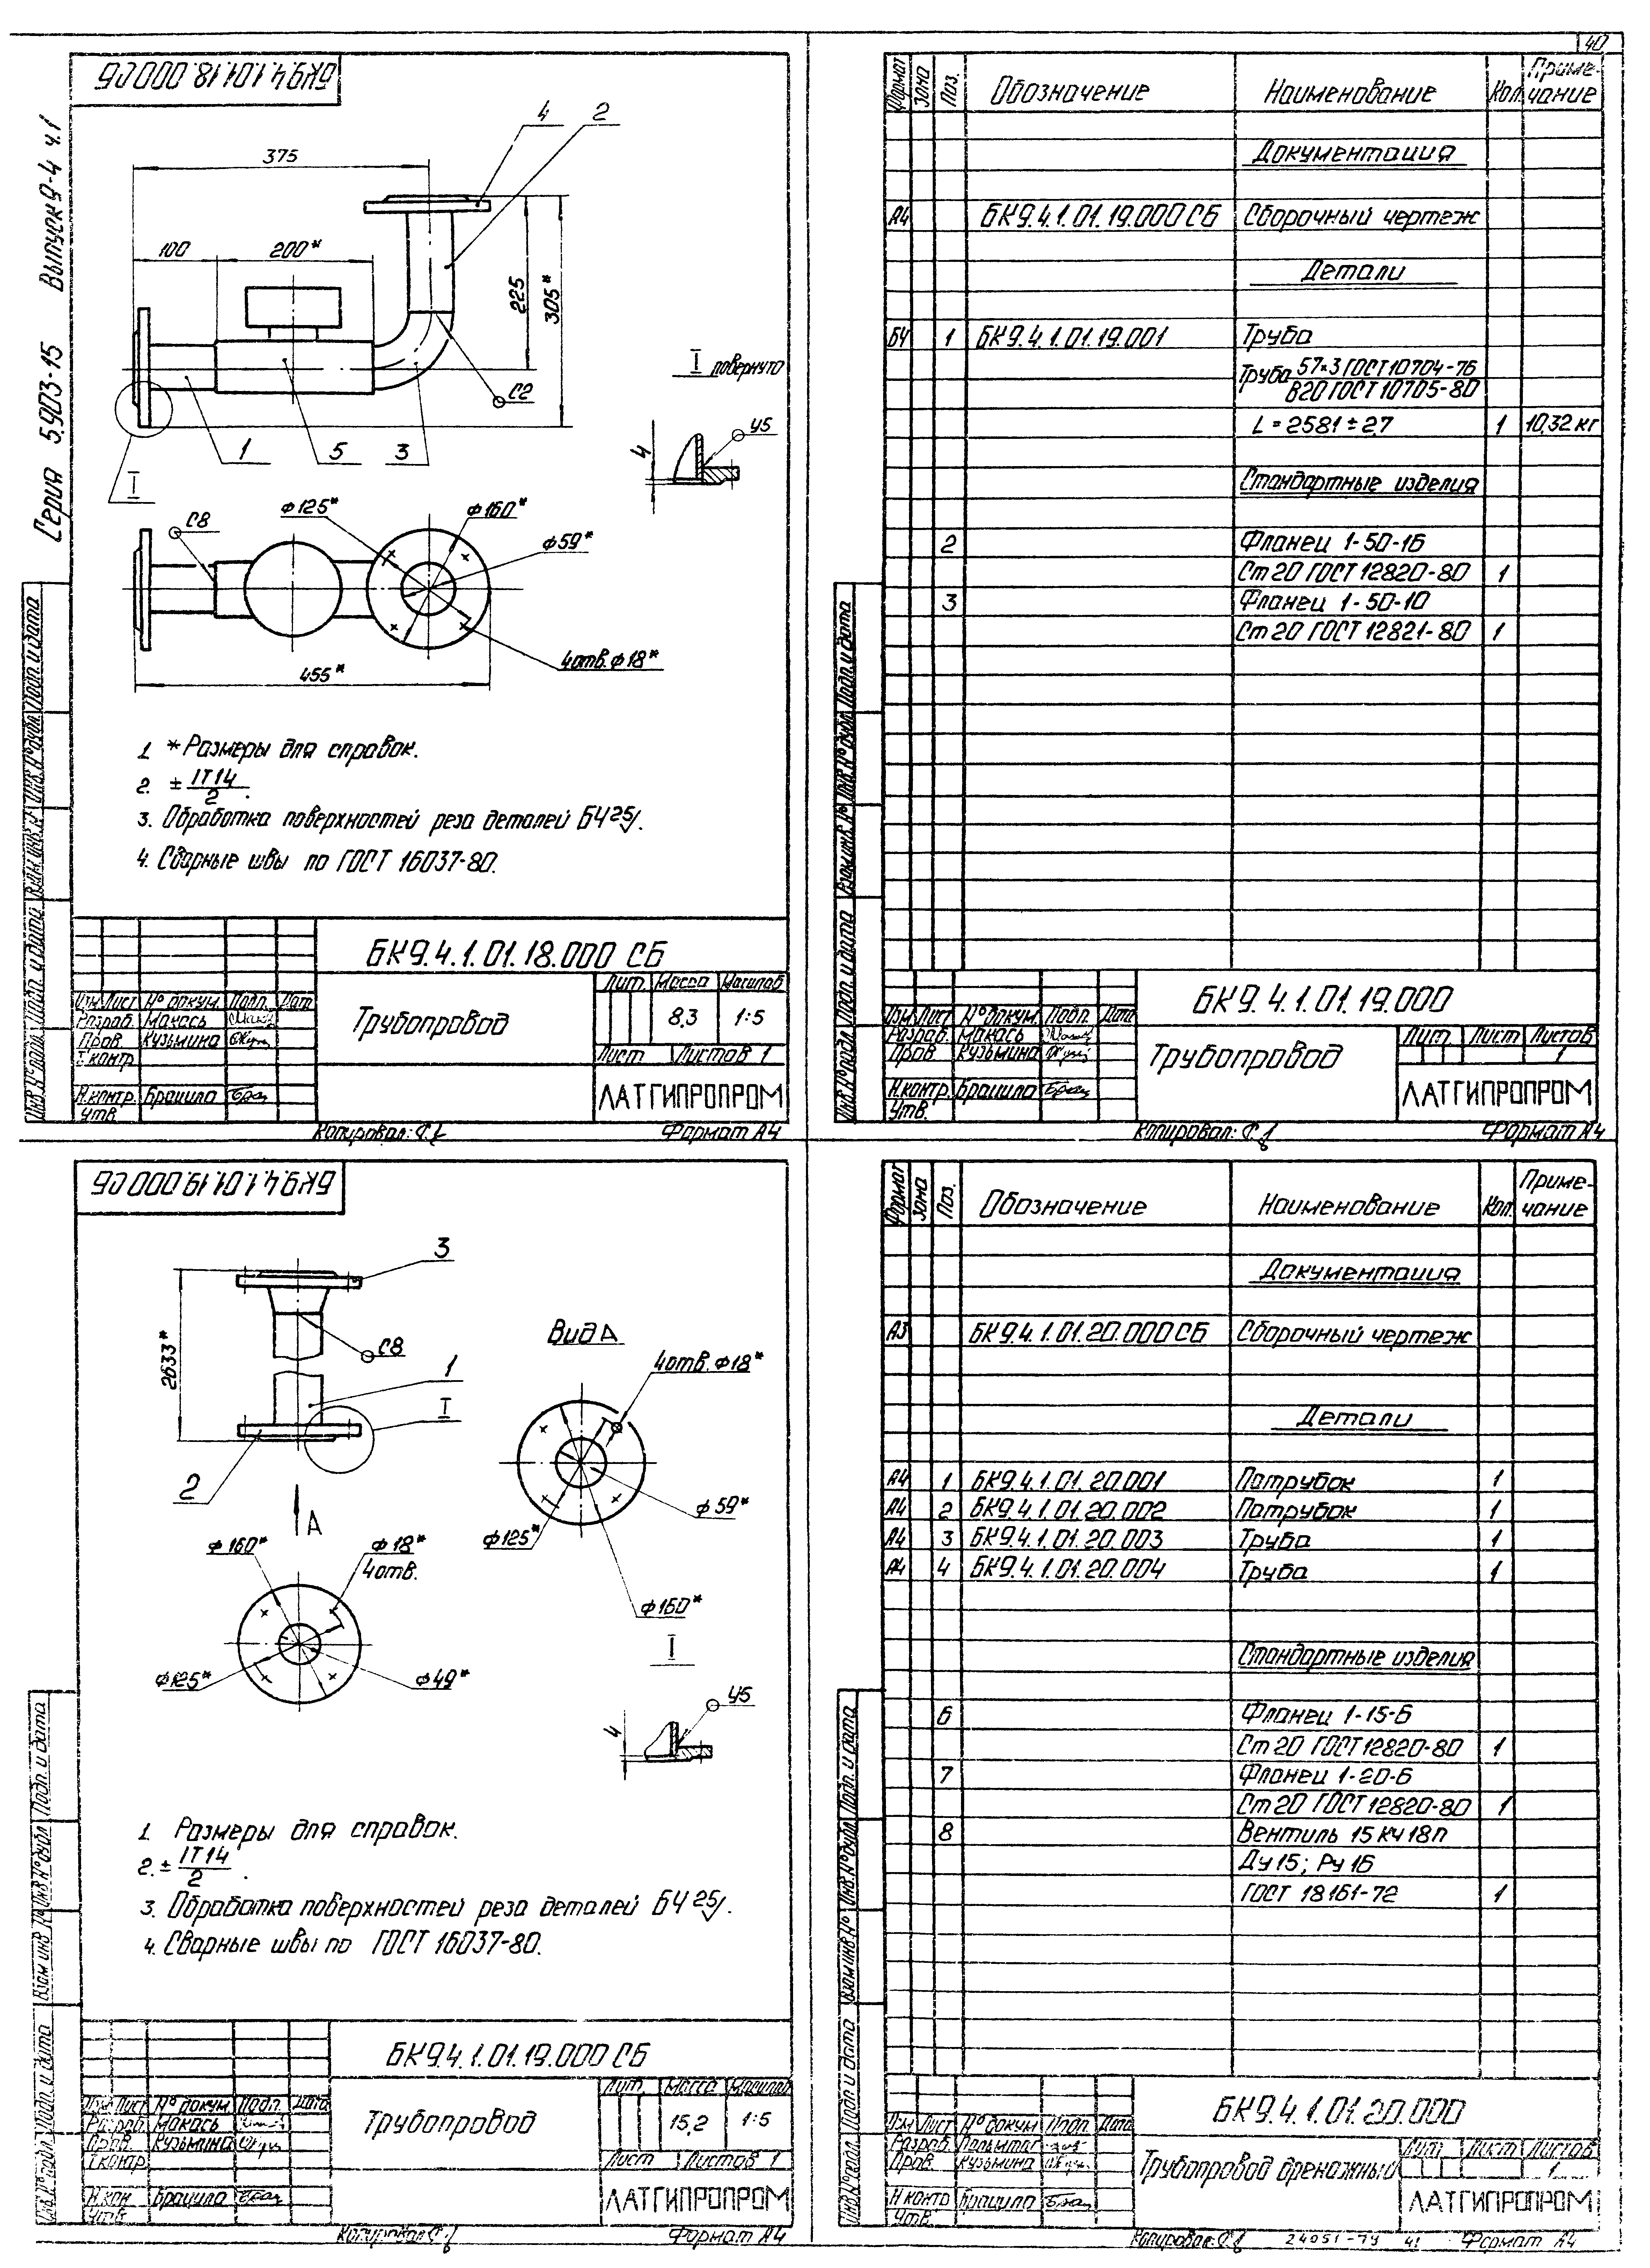 40
БК9.4.1.01.18.000СБ
Серия 5.903-15 Выпуск 9-4 ч.1
4 2
375
100 200*
225
305*
С2
1 5 3
I
I повернуто
У5
4
С8
ф125*
ф160*
ф59*
4отв.ф18*
455*
1. *Размеры для справок.
2. ± IT14/2.
3. Обработка поверхностей реза деталей БЧ 25/.
4. Сварные швы по ГОСТ 16037-80.
БК9.4.1.01.18.000 СБ
Трубопровод
Лит. Масса Масштаб
8,3 1:5
Лист Листов 1
Изм Лист № докум. Подп. Дата
Разраб. Макась
Пров. Кузьмина
Т.контр.
Н.контр. Брацила
Утв.
ЛАТГИПРОПРОМ
Копировал: Формат А4
Инв.№ подл. Подп. и дата Взам.инв.№ Инв.№ дубл. Подп. и дата
Формат Зона Поз. Обозначение Наименование Кол. Приме-
чание
Документация
А4 БК9.4.1.01.19.000СБ Сборочный чертеж
Детали
БЧ 1 БК9.4.1.01.19.001 Труба
Труба 57×3 ГОСТ 10704-76
В20 ГОСТ 10705-80
L = 2581 ± 2,7 1 10,32 кг
Стандартные изделия
2 Фланец 1-50-16
Ст 20 ГОСТ 12820-80 1
3 Фланец 1-50-10
Ст 20 ГОСТ 12821-80 1
БК9.4.1.01.19.000
Трубопровод
Изм Лист № докум. Подп. Дата
Разраб. Макась
Пров. Кузьмина
Н.контр. Брацила
Утв.
Лит Лист Листов
1
ЛАТГИПРОПРОМ
Копировал: Формат А4
Инв.№ подл. Подп. и дата Взам.инв.№ Инв.№ дубл. Подп. и дата
БК9.4.1.01.19.000СБ
3
2633*
С8
1
I
2
А
Вид А
4отв.ф18*
ф59*
ф125*
ф160*
ф160*
ф18*
4отв.
ф125*
ф49*
I
У5
4
1. Размеры для справок.
2. ± IT14/2.
3. Обработка поверхностей реза деталей БЧ 25/.
4. Сварные швы по ГОСТ 16037-80.
БК9.4.1.01.19.000 СБ
Трубопровод
Лит. Масса Масштаб
15,2 1:5
Лист Листов 1
Изм Лист № докум Подп. Дата
Разраб. Макась
Пров. Кузьмина
Т.контр
Н.кон Брацила
Утв
ЛАТГИПРОПРОМ
Копировал Формат А4
Инв.№ подл. Подп. и дата Взам инв № Инв № дубл Подп. и дата
Формат Зона Поз. Обозначение Наименование Кол. Приме-
чание
Документация
А3 БК9.4.1.01.20.000СБ Сборочный чертеж
Детали
А4 1 БК9.4.1.01.20.001 Патрубок 1
А4 2 БК9.4.1.01.20.002 Патрубок 1
А4 3 БК9.4.1.01.20.003 Труба 1
А4 4 БК9.4.1.01.20.004 Труба 1
Стандартные изделия
6 Фланец 1-15-6
Ст 20 ГОСТ 12820-80 1
7 Фланец 1-20-6
Ст 20 ГОСТ 12820-80 1
8 Вентиль 15кч18п
Ду 15; Ру 16
ГОСТ 18161-72 1
БК9.4.1.01.20.000
Трубопровод дренажный
Изм Лист № докум Подп. Дата
Разраб.
Пров. Кузьмина
Н контр Брацила
Утв.
Лит Лист Листов
1
ЛАТГИПРОПРОМ
Копировал: 24051-74 41 Формат А4
Инв.№ подл. Подп. и дата Взам инв.№ Инв.№ дубл. Подп. и дата